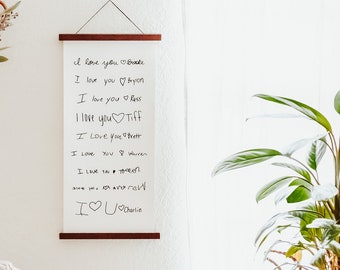 I love you ♡ Brooke
I love you ♡ Bryon
I love you ♡ Ross
I love you ♡ Tiff
I Love You ♡ Brett
I Love You ♡ Warren
I Love
I ♡ U ♡ Charlie